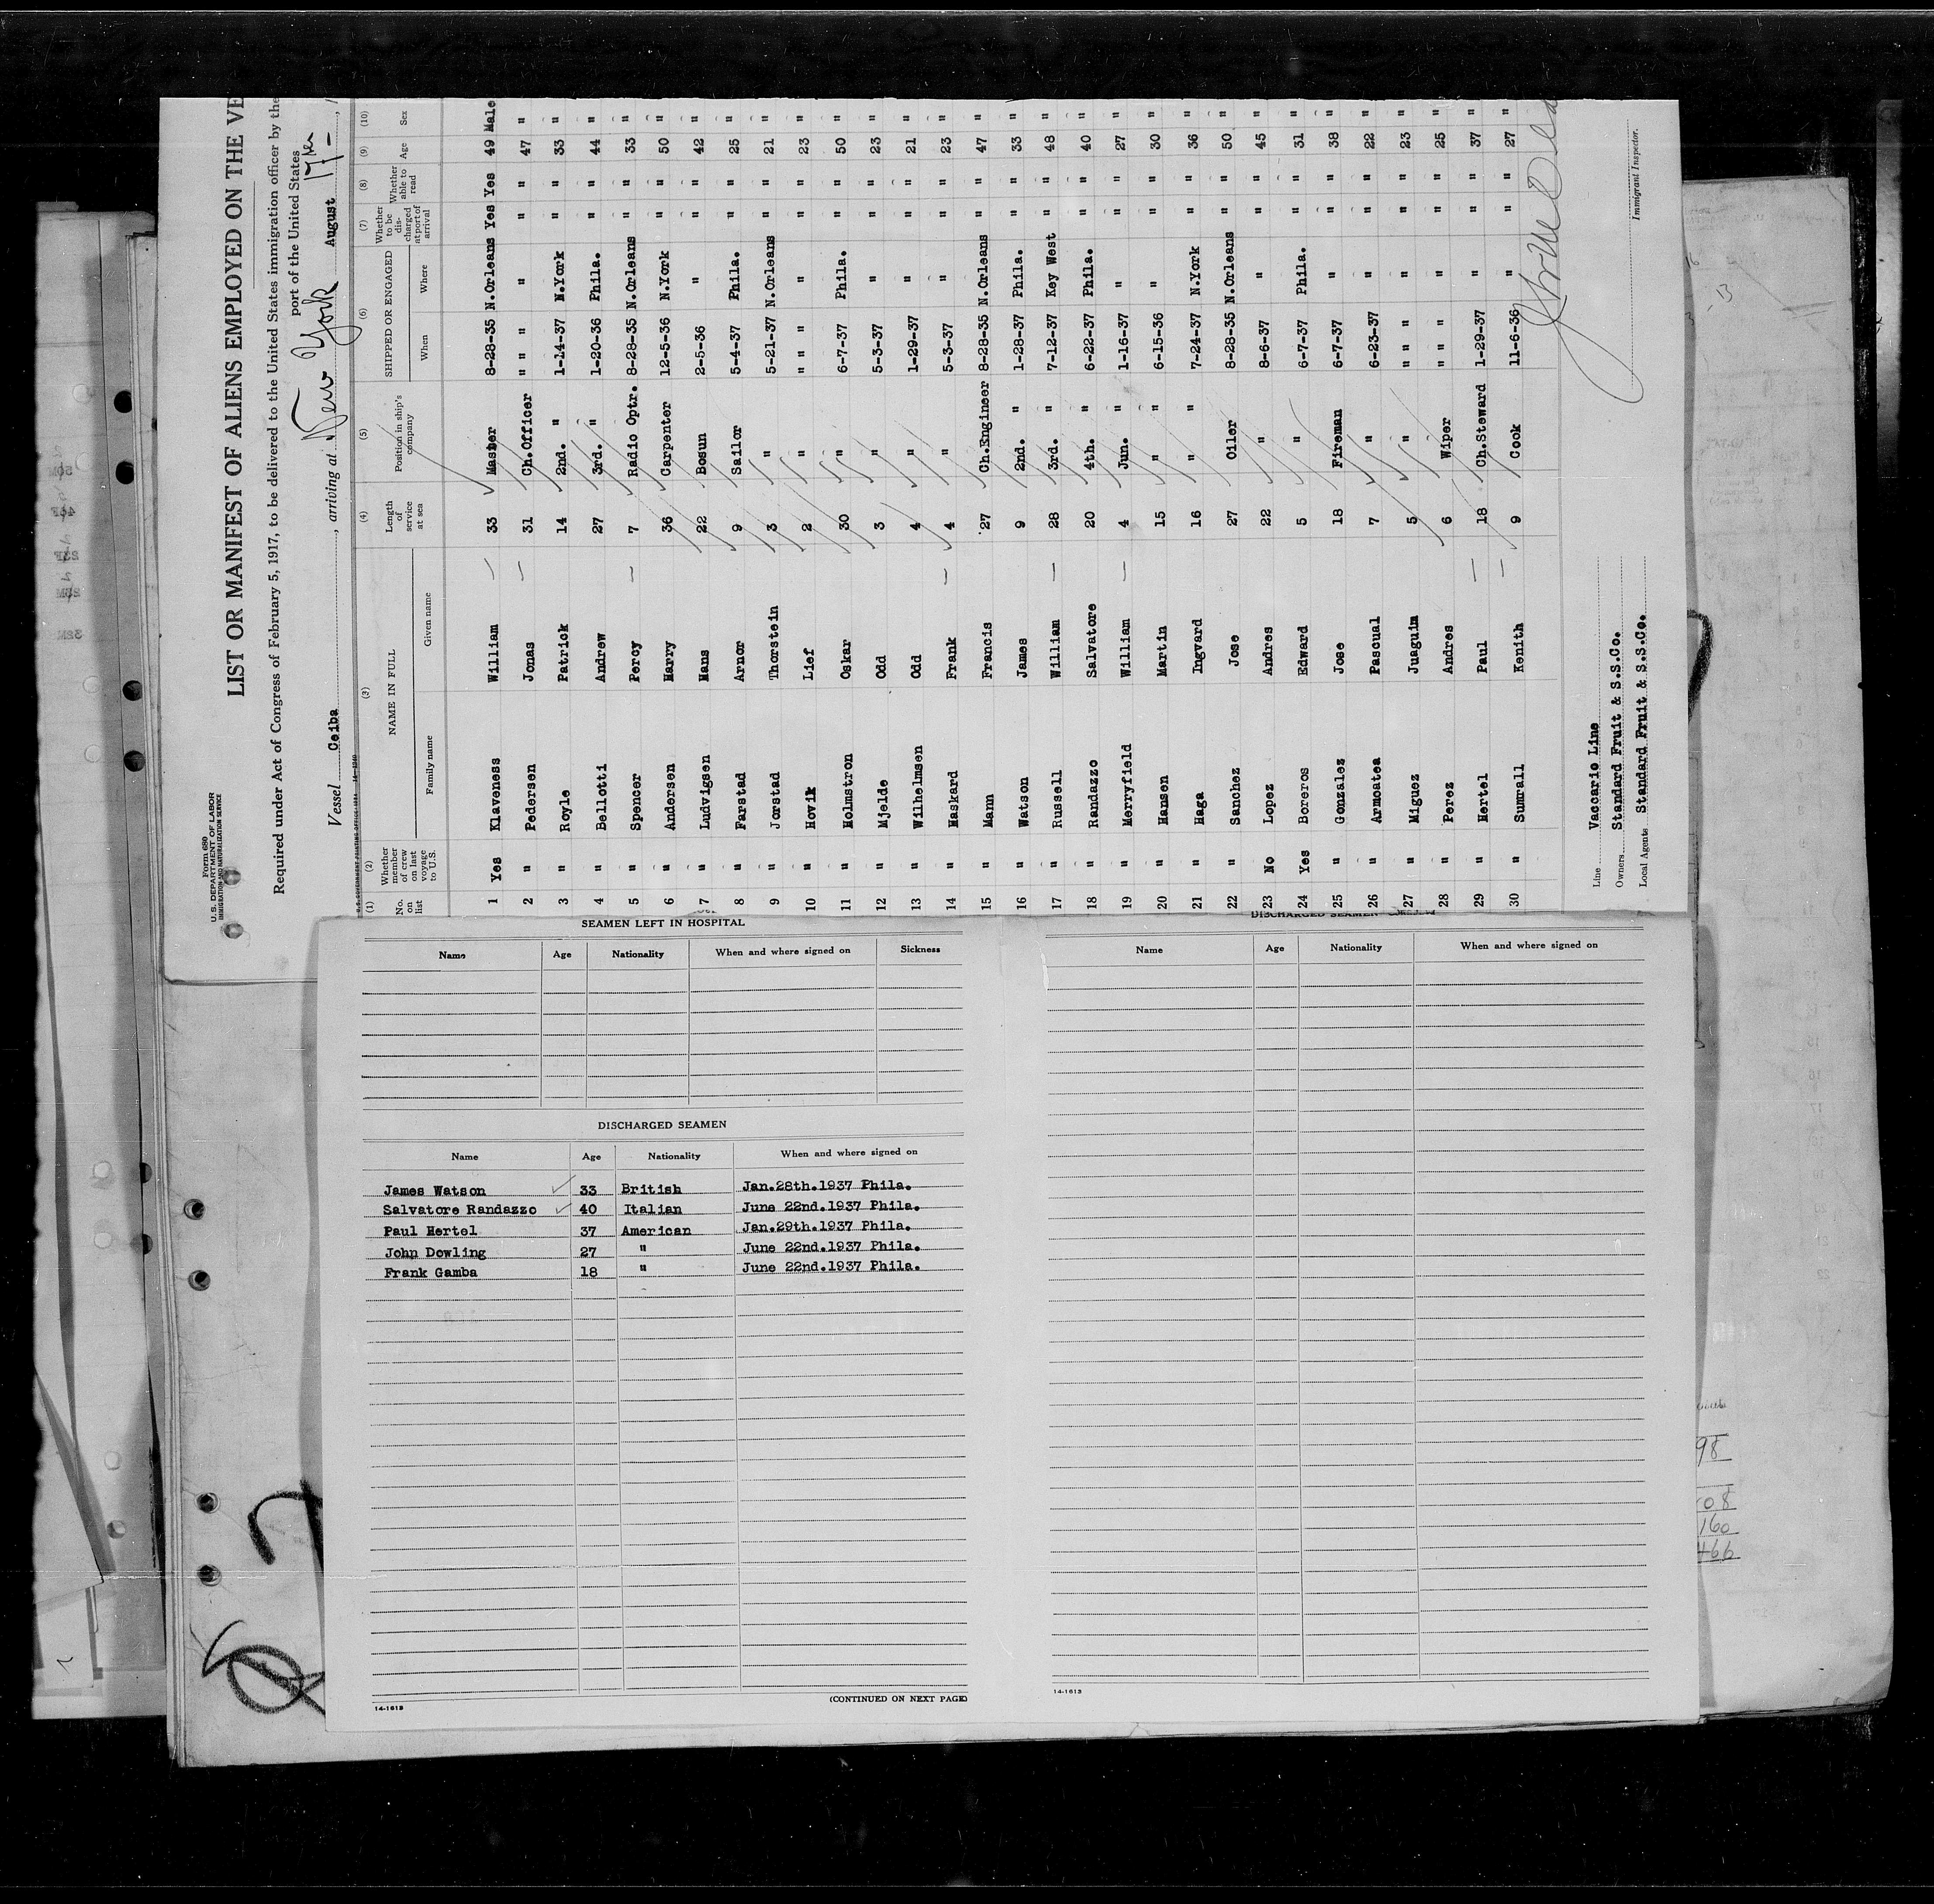 Form 680
U. S. DEPARTMENT OF LABOR
IMMIGRATION AND NATURALIZATION SERVICE
LIST OR MANIFEST OF ALIENS EMPLOYED ON THE VE
Required under Act of Congress of February 5, 1917, to be delivered to the United States immigration officer by the
port of the United States
Vessel Ceiba, arriving at New York August 17th
(1) (2) (3) (4) (5) (6) (7) (8) (9) (10)
No. on list Whether member of crew on last voyage to U.S. NAME IN FULL Family name Given name Length of service at sea Position in ship's company SHIPPED OR ENGAGED When Where Whether to be discharged at port of arrival Whether able to read Age Sex
1 Yes Klaveness William 33 Master 8-28-35 N.Orleans Yes Yes 49 Male
2 " Pedersen Jonas 31 Ch.Officer " " " " " " 47 "
3 " Royle Patrick 14 2nd. " 1-14-37 N.York " " 33 "
4 " Bellotti Andrew 27 3rd. " 1-20-36 Phila. " " 44 "
5 " Spencer Percy 7 Radio Optr. 8-28-35 N.Orleans " " 33 "
6 " Andersen Harry 36 Carpenter 12-5-36 N.York " " 50 "
7 " Ludvigsen Hans 22 Bosun 2-5-36 " " " 42 "
8 " Farstad Arnor 9 Sailor 5-4-37 Phila. " " 25 "
9 " Jorstad Thorstein 3 " 5-21-37 N.Orleans " " 21 "
10 " Hovik Lief 2 " " " " " " 23 "
11 " Holmstron Oskar 30 " 6-7-37 Phila. " " 50 "
12 " Mjelde Odd 3 " 5-3-37 " " " 23 "
13 " Wilhelmsen Odd 4 " 1-29-37 " " " 21 "
14 " Haskard Frank 4 " 5-3-37 " " " 23 "
15 " Mann Francis 27 Ch.Engineer 8-28-35 N.Orleans " " 47 "
16 " Watson James 9 2nd. " 1-28-37 Phila. " " 33 "
17 " Russell William 28 3rd. " 7-12-37 Key West " " 48 "
18 " Randazzo Salvatore 20 4th. " 6-22-37 Phila. " " 40 "
19 " Merryfield William 4 Jun. " 1-16-37 " " " 27 "
20 " Hansen Martin 15 " " 6-15-36 " " " 30 "
21 " Haga Ingvard 16 " " 7-24-37 N.York " " 36 "
22 " Sanchez Jose 27 Oiler 8-28-35 N.Orleans " " 50 "
23 No Lopez Andres 22 " 8-6-37 " " " 45 "
24 Yes Boreros Edward 5 " 6-7-37 Phila. " " 31 "
25 " Gonzalez Jose 18 Fireman 6-7-37 " " " 38 "
26 " Armoatea Pascual 7 " 6-23-37 " " " 22 "
27 " Miguez Juaguim 5 " " " " " " 23 "
28 " Perez Andres 6 Wiper " " " " " 25 "
29 " Hertel Paul 18 Ch.Steward 1-29-37 " " " 37 "
30 " Sumrall Kenith 9 Cook 11-6-36 " " " 27 "
Line Vaccario Line
Owners Standard Fruit & S.S.Co.
Local Agents Standard Fruit & S.S.Co.
Immigrant Inspector.
SEAMEN LEFT IN HOSPITAL
Name Age Nationality When and where signed on Sickness
DISCHARGED SEAMEN
Name Age Nationality When and where signed on
James Watson 33 British Jan.28th.1937 Phila.
Salvatore Randazzo 40 Italian June 22nd.1937 Phila.
Paul Hertel 37 American Jan.29th.1937 Phila.
John Dowling 27 " June 22nd.1937 Phila.
Frank Gamba 18 " June 22nd.1937 Phila.
14-1613
(CONTINUED ON NEXT PAGE)
DISCHARGED SEAMEN
Name Age Nationality When and where signed on
14-1613
98
08
160
466